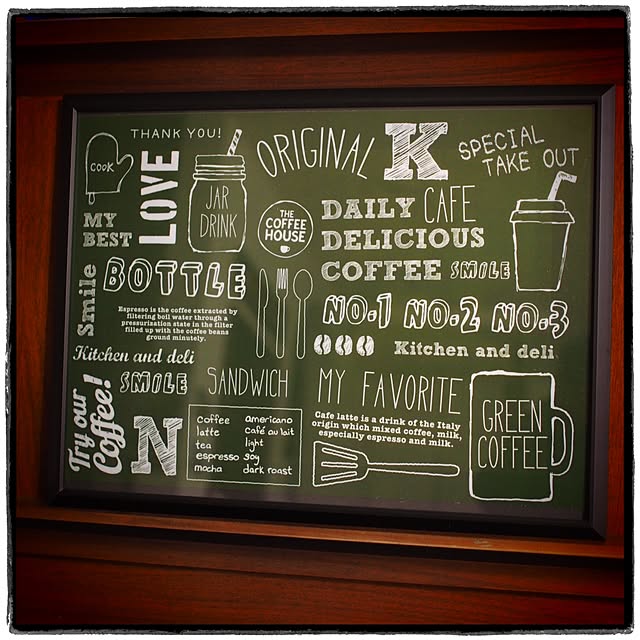 THANK YOU!
COOK
LOVE
MY
BEST
JAR
DRINK
ORIGINAL
K
SPECIAL
TAKE OUT
THE
COFFEE
HOUSE
DAILY CAFE
DELICIOUS
COFFEE SMILE
Smile
BOTTLE
Espresso is the coffee extracted by
filtering boil water through a
pressurization state in the filter
filled up with the coffee beans
ground minutely.
NO.1 NO.2 NO.3
Kitchen and deli
Kitchen and deli
SMILE
SANDWICH
MY FAVORITE
Cafe latte is a drink of the Italy
origin which mixed coffee, milk,
especially espresso and milk.
Try our
Coffee!
N
Coffee americano
latte café au lait
tea light
espresso soy
mocha dark roast
GREEN
COFFEE